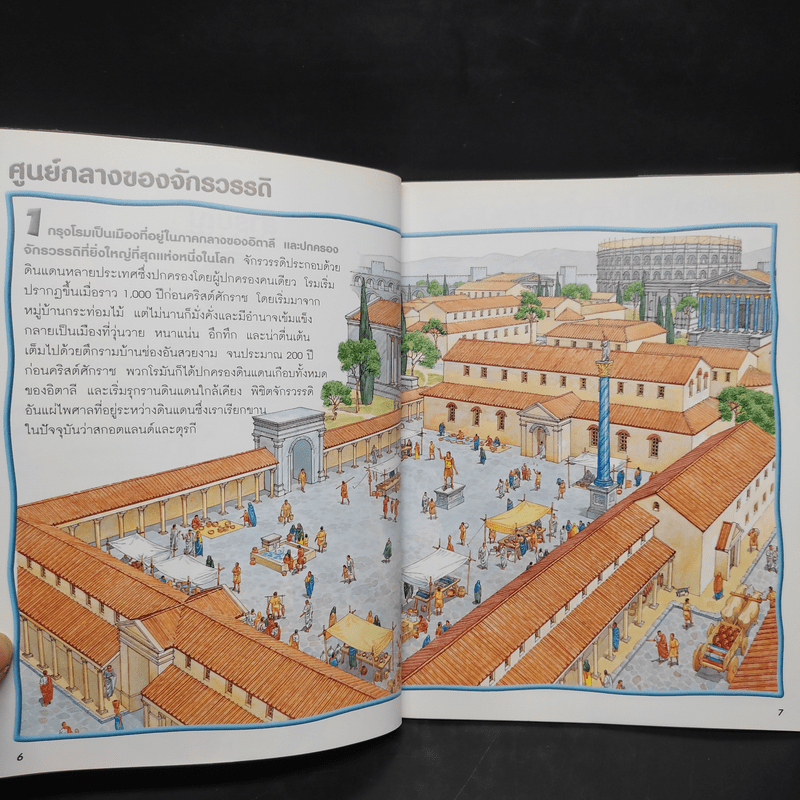 ศูนย์กลางของจักรวรรดิ
1 กรุงโรมเป็นเมืองที่อยู่ในภาคกลางของอิตาลี และปกครอง
จักรวรรดิที่ยิ่งใหญ่ที่สุดแห่งหนึ่งในโลก จักรวรรดิประกอบด้วย
ดินแดนหลายประเทศซึ่งปกครองโดยผู้ปกครองคนเดียว โรมเริ่ม
ปรากฏขึ้นเมื่อราว 1,000 ปีก่อนคริสต์ศักราช โดยเริ่มมาจาก
หมู่บ้านกระท่อมไม้ แต่ไม่นานก็มั่งคั่งและมีอำนาจเข้มแข็ง
กลายเป็นเมืองที่วุ่นวาย หนาแน่น อึกทึก และน่าตื่นเต้น
เต็มไปด้วยตึกรามบ้านช่องอันสวยงาม จนประมาณ 200 ปี
ก่อนคริสต์ศักราช พวกโรมันก็ได้ปกครองดินแดนเกือบทั้งหมด
ของอิตาลี และเริ่มรุกรานดินแดนใกล้เคียง พิชิตจักรวรรดิ
อันแผ่ไพศาลที่อยู่ระหว่างดินแดนซึ่งเราเรียกขาน
ในปัจจุบันว่าสกอตแลนด์และตุรกี
6
7